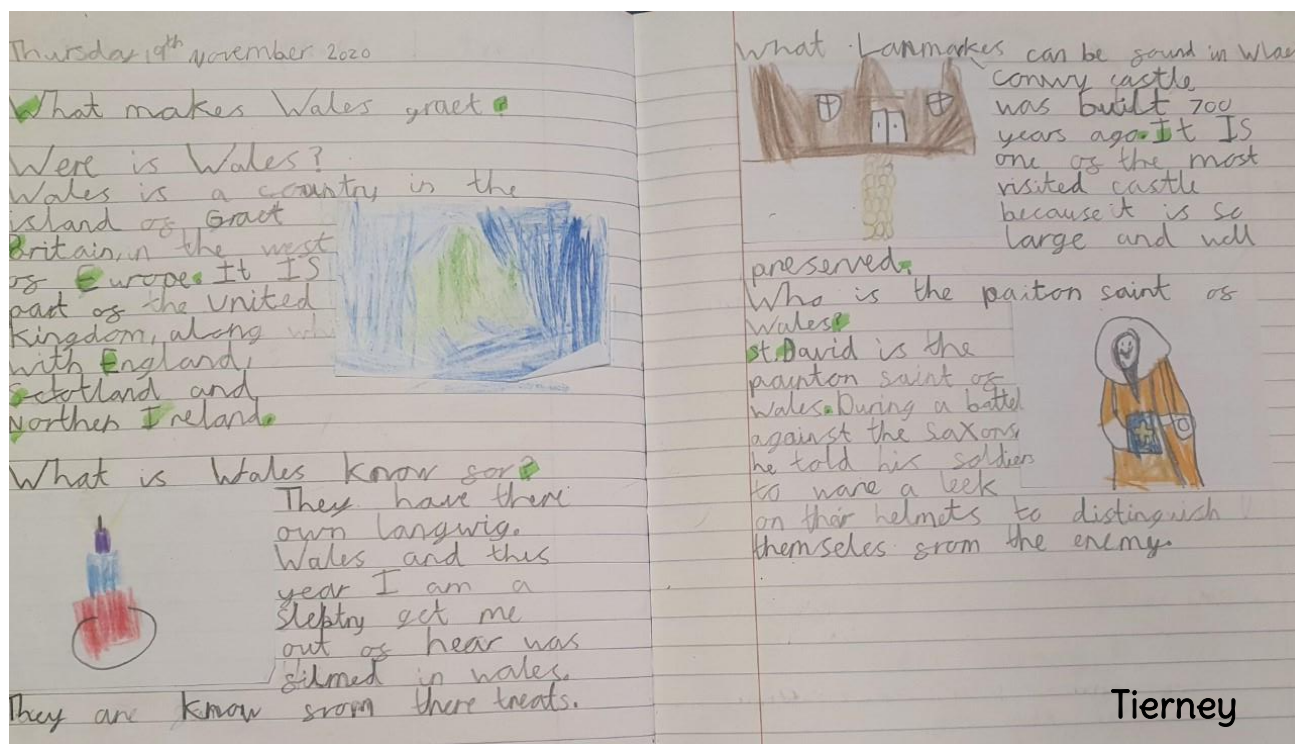 Thursday 19th November 2020
What makes Wales graet?
Were is Wales?
Wales is a country in the
island of Graet
Britain, in the west
of Europe. It IS
part of the United
Kingdom, along
with England,
Sctotland and
Northen Ireland.
What is Wales know for?
They have there
own langwig.
Wales and this
year I am a
Sleptry get me
out of hear was
filmed in wales.
They are know from there treats.
What Lanmarkes can be found in Wlae
conwy castle
was built 700
years ago. It IS
one of the most
visited castle
because it is so
large and well
preserved.
Who is the paiton saint of
Wales?
St. David is the
paunton saint of
Wales. During a battel
against the Saxons,
he told his soldiers
to ware a leek
on thair helmets to distinguish
themseles from the enemy.
Tierney